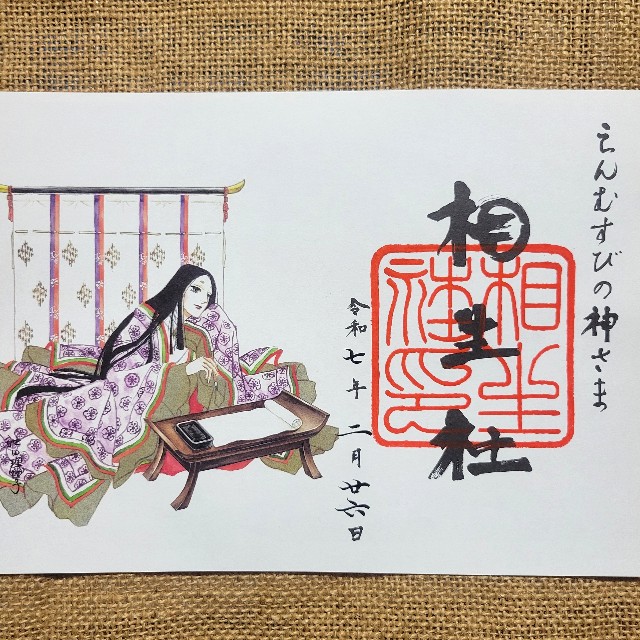 えんむすびの神さま
相生社
相生
社印
令和七年 二月廿六日